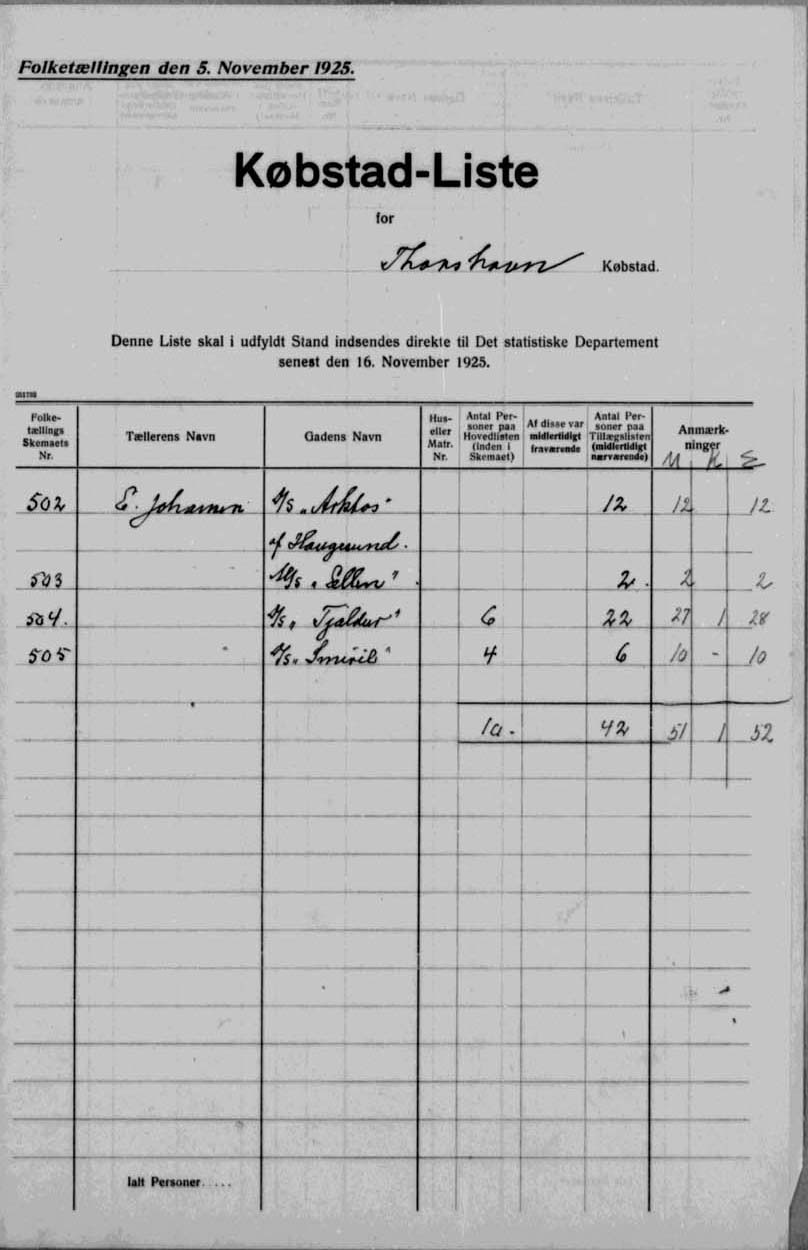 Folketællingen den 5. November 1925.
Købstad-Liste
for
Thorshavn Købstad.
Denne Liste skal i udfyldt Stand indsendes direkte til Det statistiske Departement
senest den 16. November 1925.
Folke-
tællings
Skemaets
Nr.
Tællerens Navn
Gadens Navn
Hus-
eller
Matr.
Nr.
Antal Per-
soner paa
Hovedlisten
(inden i
Skemaet)
Af disse var
midlertidigt
fraværende
Antal Per-
soner paa
Tillægslisten
(midlertidigt
nærværende)
Anmærk-
ninger
M K
502 E. Johansen "Arktos" 12 12 12
af Haugesund.
503 "Ellen" 2. 2 2
504. "Tjaldur" 6 22 27 1 28
505 "Smiril" 4 6 10 - 10
10. 42 51 1 52
Ialt Personer.....